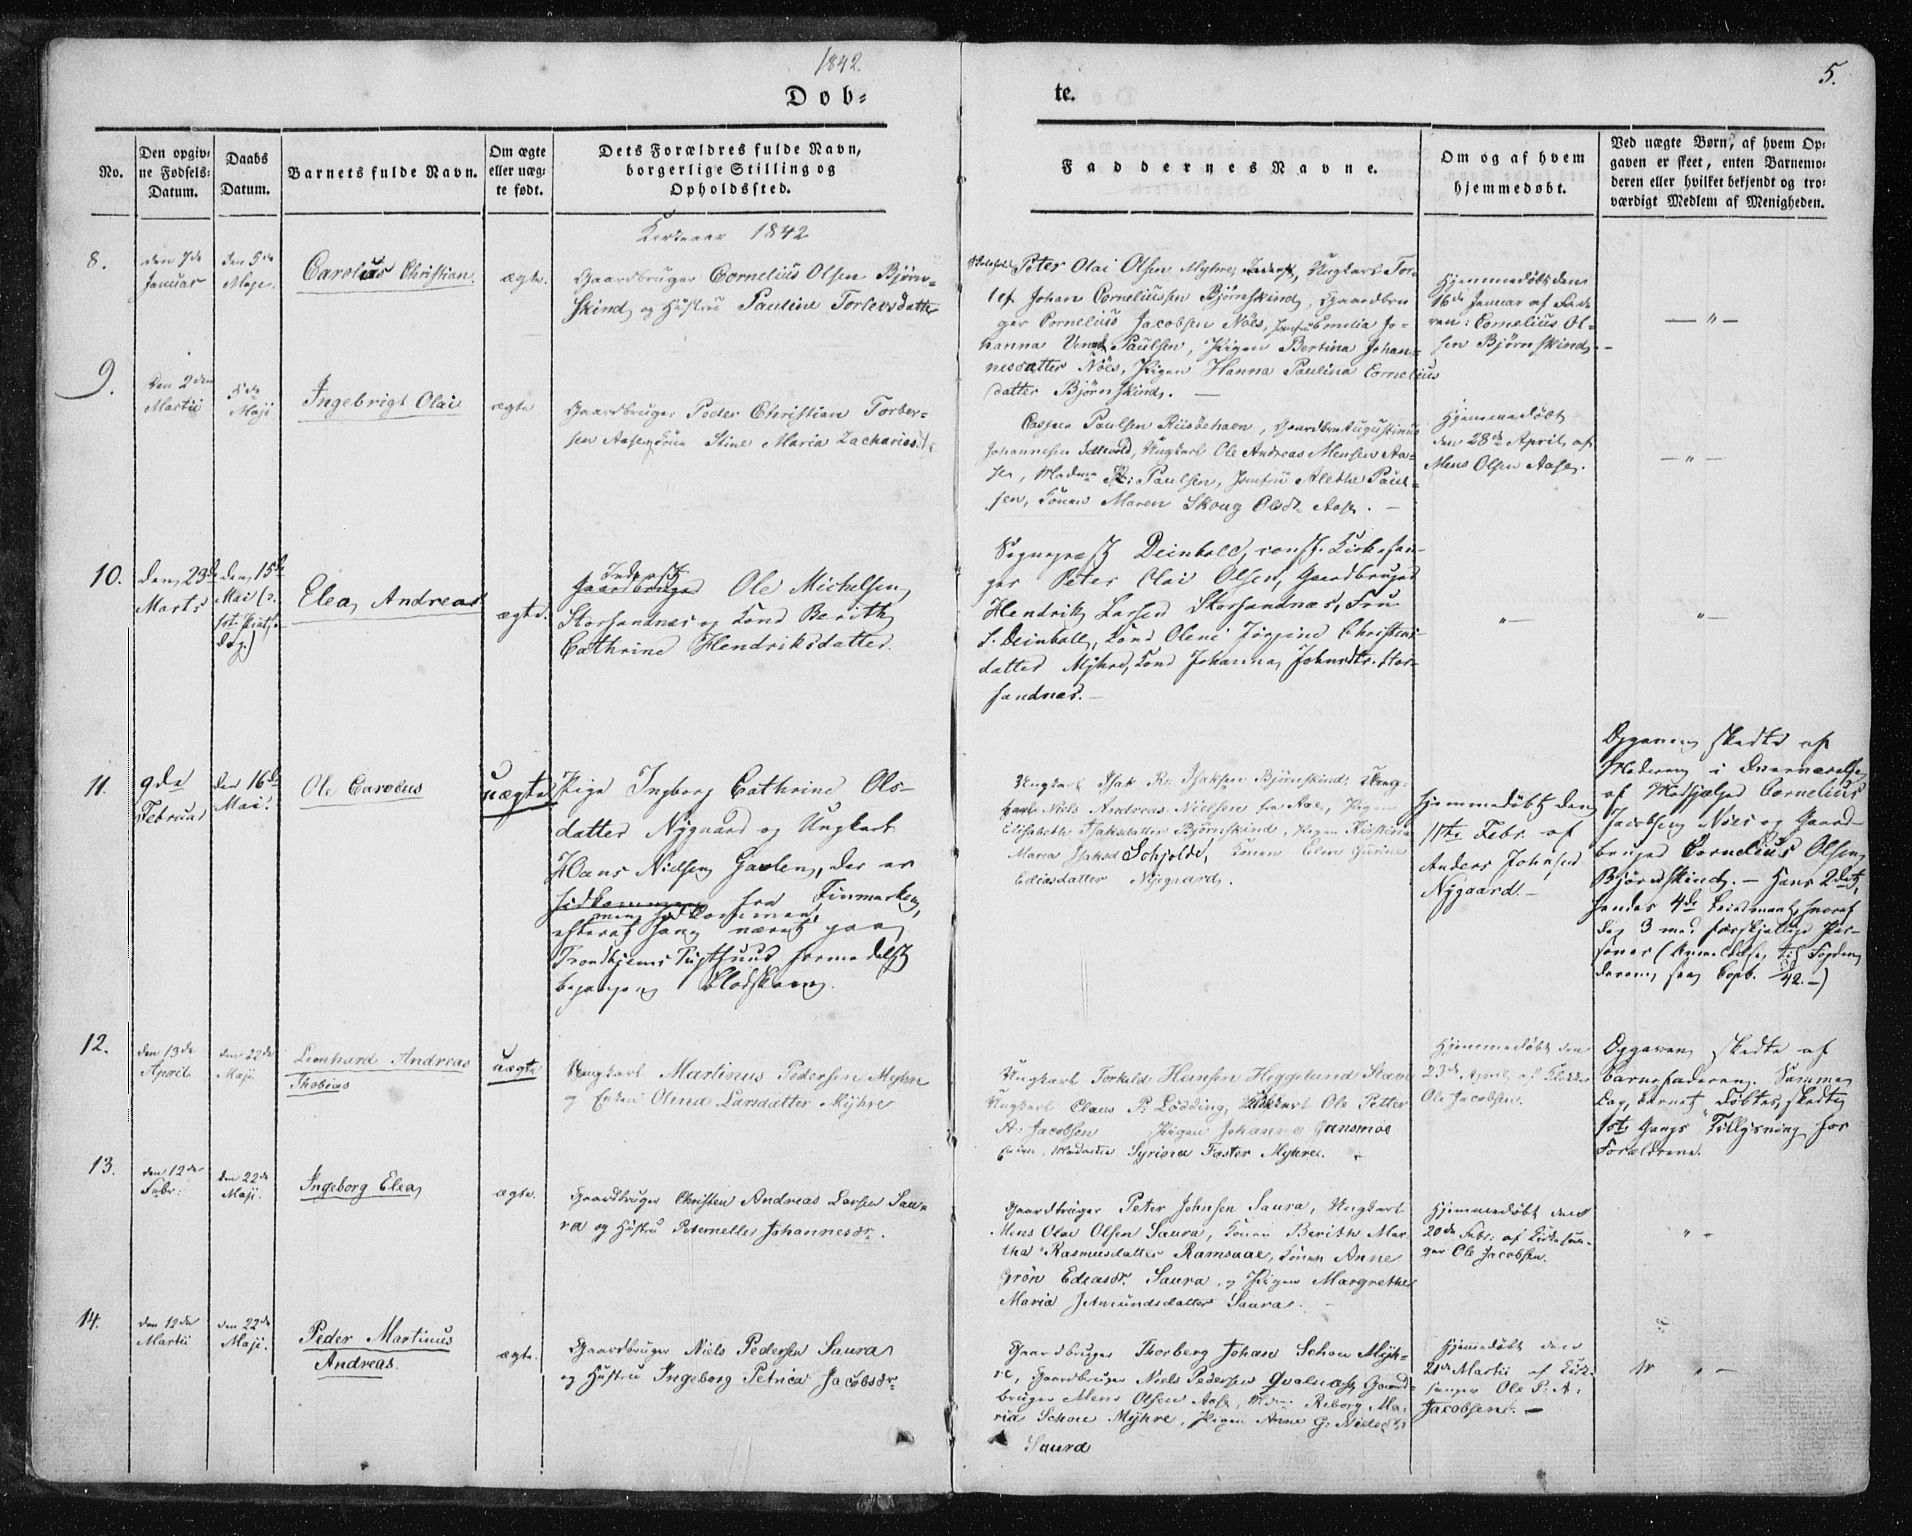 1842.
5.
Dob-
te.
No.
Den opgiv-
ne Fødsels-
Datum.
Daabs
Datum.
Barnets fulde Navn.
Om ægte
eller uæg-
te født.
Dets Forældres fulde Navn,
borgerlige Stilling og
Opholdssted.
Faddernes Navne.
Om og af hvem
hjemmedøbt.
Ved uægte Børn, af hvem Op-
gaven er skeet, enten Barnemo-
deren eller hvilket bekjendt og tro-
værdigt Medlem af Menigheden.
Kirkeaar 1842
8.
den 7de
Januar
den 5te
Maji.
Carolus Christian.
ægte.
Gaardbruger Cornelius Olsen Bjørn-
skind og Hustru Pauline Torlevsdatter
Peter Olai Olsen Myhre, Ungkarl Tor-
lef Johan Corneliussen Bjørnskind, Gaardbru
ger Cornelius Jacobsen Nöis, Jomfru Emilia Jo-
hanna Paulsen, Pigen Bertina Johan-
nesdatter Nöis, Pigen Hanna Paulina Cornelius
datter Bjørnskind. —
Hjemmedøbt den
16de Januar af Fade
ren: Cornelius Ol-
sen Bjørnskind.
— " —
9.
Den 2den
Martii
5te
Maji
Ingebrigt Olai
ægte
Gaardbruger Peder Christian Torber-
sen Aase, Stine Maria Zachariasdtr
Casper Paulsen Riisøehavn, Gaardbr Augustinus
Johannesen, Ungkarl Ole Andreas Monsen Aa-
se, Madme R: Paulsen, Jomfru Alethe Paul-
sen, Konen Maren Skoug Olsdt Aase. —
Hjemmedøbt
den 28de April af
Mons Olsen Aase.
— " —
10.
den 23de
Marts
den 15de
Mai (2.
1ste Pintse
Dag.)
Elea Andreas
ægte.
Inderst
Gaardbruger Ole Michelsen
Storsandnæs og Kone Berith
Cathrine Hendriksdatter.
Sognepræst Deinboll, const. Kirkesan-
ger Peter Olai Olsen, Gaardbruger
Hendrik Larsen Storsandnæs, Fru
S. Deinboll, Kone Oleni Jørgine Christens-
datter Myhre, Kone Johanna Johnsdtr. Stor-
sandnæs. —
" —
" —
11.
9de
Februar
den 16de
Mai.
Ole Carolus
uægte
Pige Ingborg Cathrine Ols-
datter Nygaard og Ungkarl
Hans Nielsen Gaulen, der er
hidkommen fra Finmarken,
men hidkommen,
efterat have været paa
Trondhjems Tugthuus formedelst
begangen Blodskam.
Ungkarl Isak Kr. Isaksen Bjørnskind, Ung-
karl Niels Andreas Nielsen fra Aae, Pigen
Elisabeth Isaksdatter Bjørnskind, Pigen Kirstine
Maria Isaksd Schjolde, Konen Elen Gurine
Ediasdatter Nygaard.
Hjemmedøbt den
11te Febr. af
Anders Johnsen
Nygaard. —
Opgaven skedte af
Moderen i Overværelse
af Medhjælper Cornelius
Jacobsen Nöis og Gaard-
bruger Cornelius Olsen
Bjørnskind. — Hans 2det,
hendes 4de Leiermaal, hvoraf
dog 3 med forskjellige Per-
soner (Anmeldelse til Fogden
derom, see Copb. /42. —)
12.
den 13de
April
den 22de
Maji
Leonhard Andreas
Thobias
uægte
Ungkarl Martinus Pedersen Myhre
og Enken Olena Larsdatter Myhre
Ungkarl Torkild Hansen Heggelund Stave
Ungkarl Claus P. Lødding, Ungkarl Ole Petter
A. Jacobsen Pigen Johanne Gansmoe
Enken, Madame Syrima Foster Myhre. —
Hjemmedøbt den
23de April af Klokker
Ole Jacobsen.
Opgaven skedte af
Barnefaderen. Samme
Dag, Barnet døbtes, skedte
1ste Gangs Tillysning for
Forældrene.
13.
den 12te
Febr:
den 22de
Maji.
Ingeborg Elea
ægte.
Gaardbruger Christen Andreas Larsen Sau-
ra og Hustru Peternelle Johannesdr.
Gaardbruger Peter Johnsen Saura, Ungkarl
Mons Olai Olsen Saura, Konen Berith Mar-
tha Rasmusdatter Ramsaae, Konen Anne
Grön Ediasdr. Saura, og Pigen Margrethe
Maria Jetmundsdatter Saura. —
Hjemmedøbt den
20de Febr: af Kirkesan-
ger Ole Jacobsen.
" —
14.
den 12te
Martii
den 22de
Maji.
Peder Martinus
Andreas.
ægte.
Gaardbruger Niels Pedersen Saura
og Hustru Ingeborg Petrica Jacobsdr.
Gaardbruger Thorberg Johan Schou Myh-
re, Gaardbruger Niels Pedersen Qvalnæs, Gaard-
bruger Mons Olsen Aase, Reborg Ma-
ria Schou Myhre, Pigen Anne G: Nielsdtr
Saura
Hjemmedøbt den
21de Martii af Kirke-
sanger Ole P. A.
Jacobsen. —
" —